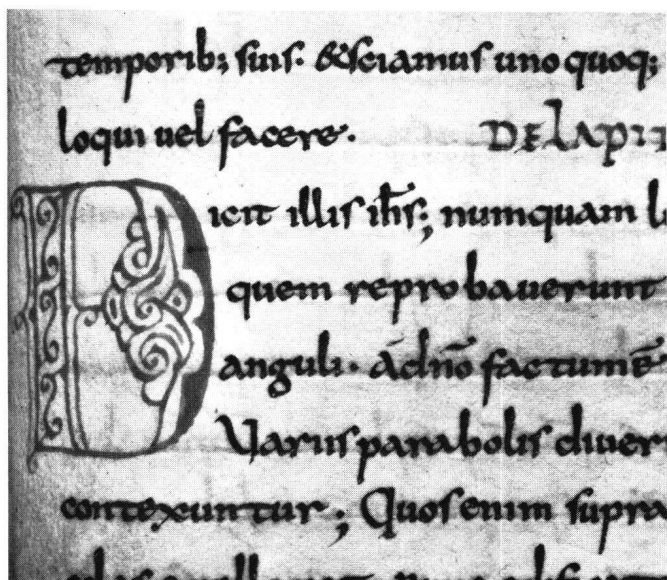 temporib; suis· &sciamus uno quoq;
loqui uel facere· DE LAPID
Dicit illis ihs; numquam l
quem reprobauerunt
anguli· Adno factume
Variis parabolis diuer
contexuntur; Quos enim supra